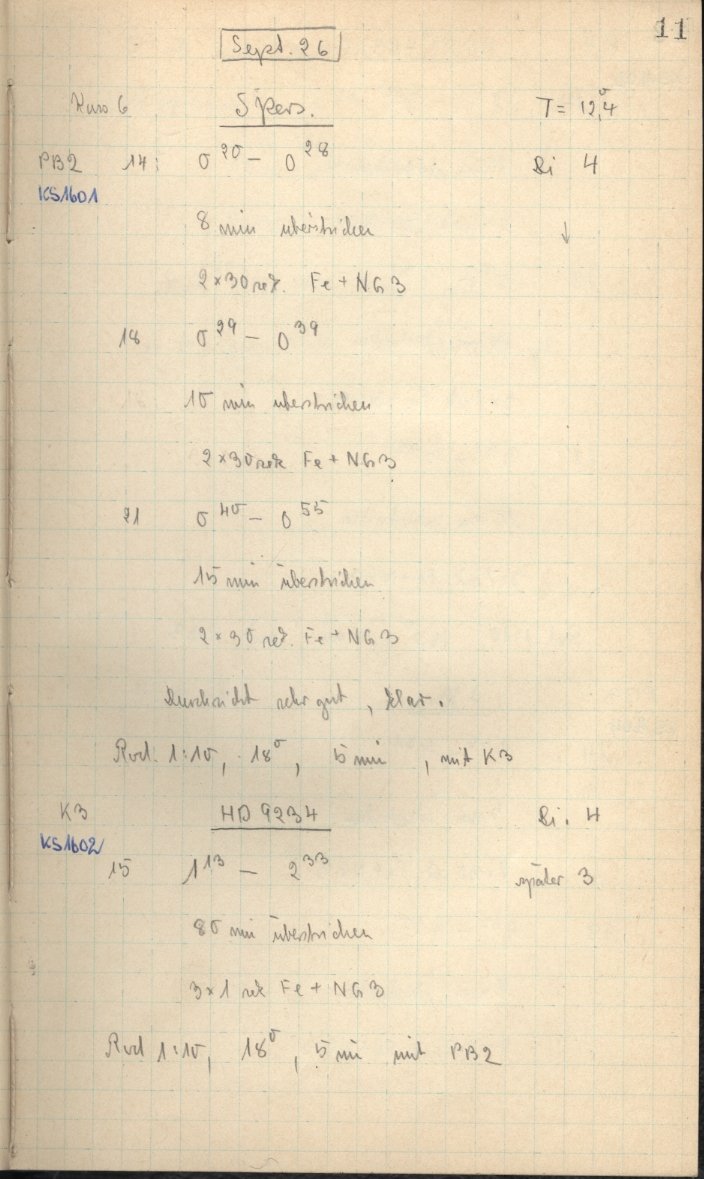 11
Sept. 26
Kass 6 S Pers. T = 12,°4
PB2 14: 0²⁰ – 0²⁸ Li 4
KS1601
8 min überstrichen ↓
2×30 sek. Fe + NG3
18 0²⁹ – 0³⁹
10 min überstrichen
2×30 sek Fe + NG3
21 0⁴⁰ – 0⁵⁵
15 min überstrichen
2×30 sek. Fe + NG3
Durchsicht sehr gut, klar.
Rod. 1:10, 18°, 5 min, mit K3
K3 HD 9234 Li. 4
KS1602
15 1¹³ – 2³³ später 3
80 min überstrichen
3×1 sek Fe + NG3
Rod 1:10, 18°, 5 mi mit PB2